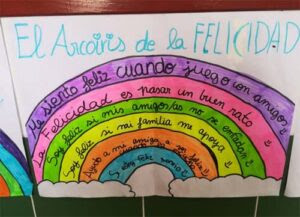 El Arcoiris de la FELICIDAD
Me siento feliz cuando juego con amigos
La Felicidad es pasar un buen rato
Soy feliz si mis amigos/as no se enfadan
Soy feliz si mi familia me apoya
Ayudo a mi amigo
feliz
Soy feliz